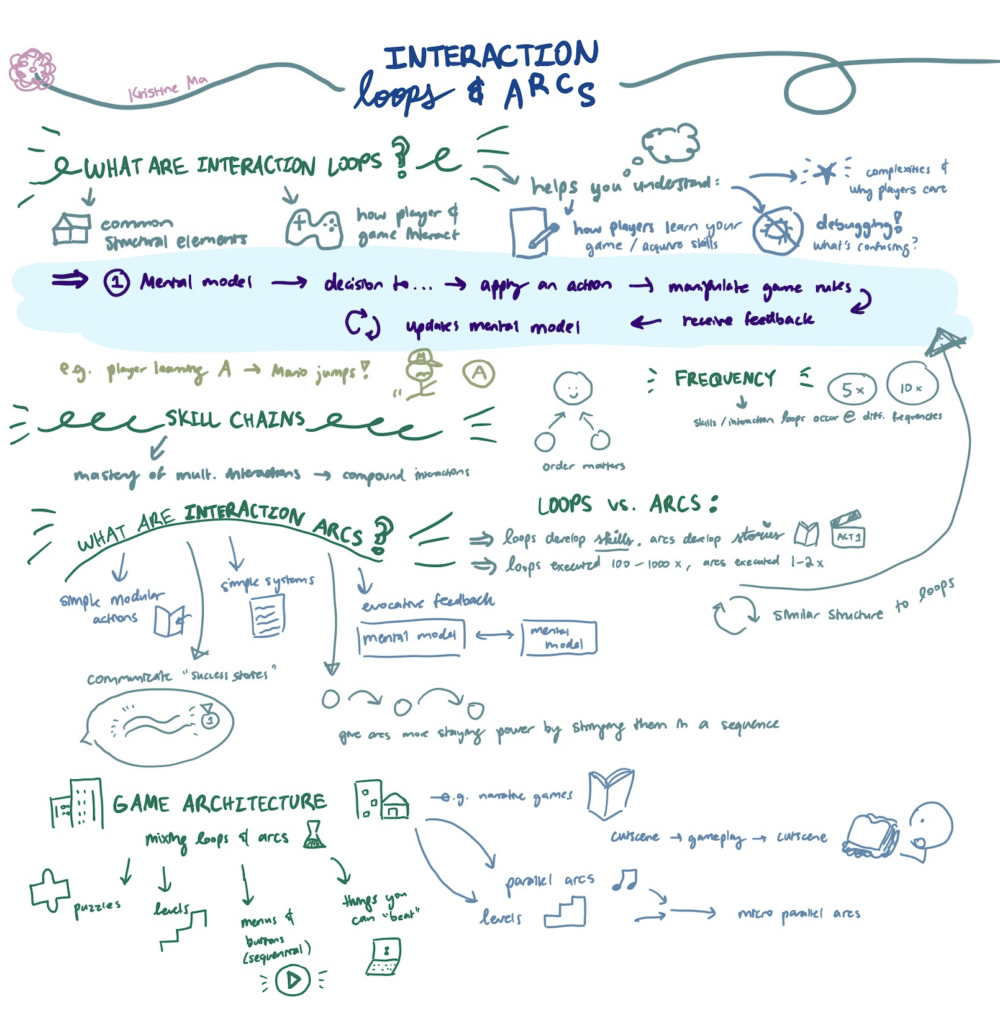 INTERACTION
loops & ARCS
Kristine Ma
WHAT ARE INTERACTION LOOPS?
common
structural elements
how player &
game interact
helps you understand:
complexities &
why players care
how players learn your
game / acquire skills
debugging!
what's confusing?
⇒ ① Mental model → decision to... → apply an action → manipulate game rules
receive feedback
← updates mental model
e.g. player learning A → Mario jumps!
A
FREQUENCY
5x
10x
skills/interaction loops occur @ diff. frequencies
SKILL CHAINS
mastery of mult. interactions → compound interactions
order matters
WHAT ARE INTERACTION ARCS?
simple modular
actions
simple systems
evocative feedback
mental model ↔ mental
model
communicate "success stories"
1
give arcs more staying power by stringing them in a sequence
LOOPS vs. ARCS:
⇒ loops develop skills, arcs develop stories
ACT 1
⇒ loops executed 100-1000x, arcs executed 1-2x
similar structure to loops
GAME ARCHITECTURE
mixing loops & arcs
puzzles
levels
menus &
buttons
(sequential)
things you
can "beat"
e.g. narrative games
cutscene → gameplay → cutscene
parallel arcs
levels
micro parallel arcs